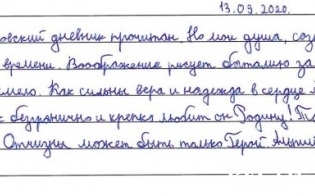 13.09.2020.
овский дневник прочитан. Но моя душа, соз
времени. Воображение рисует баталию за
мело. Как сильны вера и надежда в сердце
безгранично и крепко любит он Родину!
Отчизны может быть только Герой.